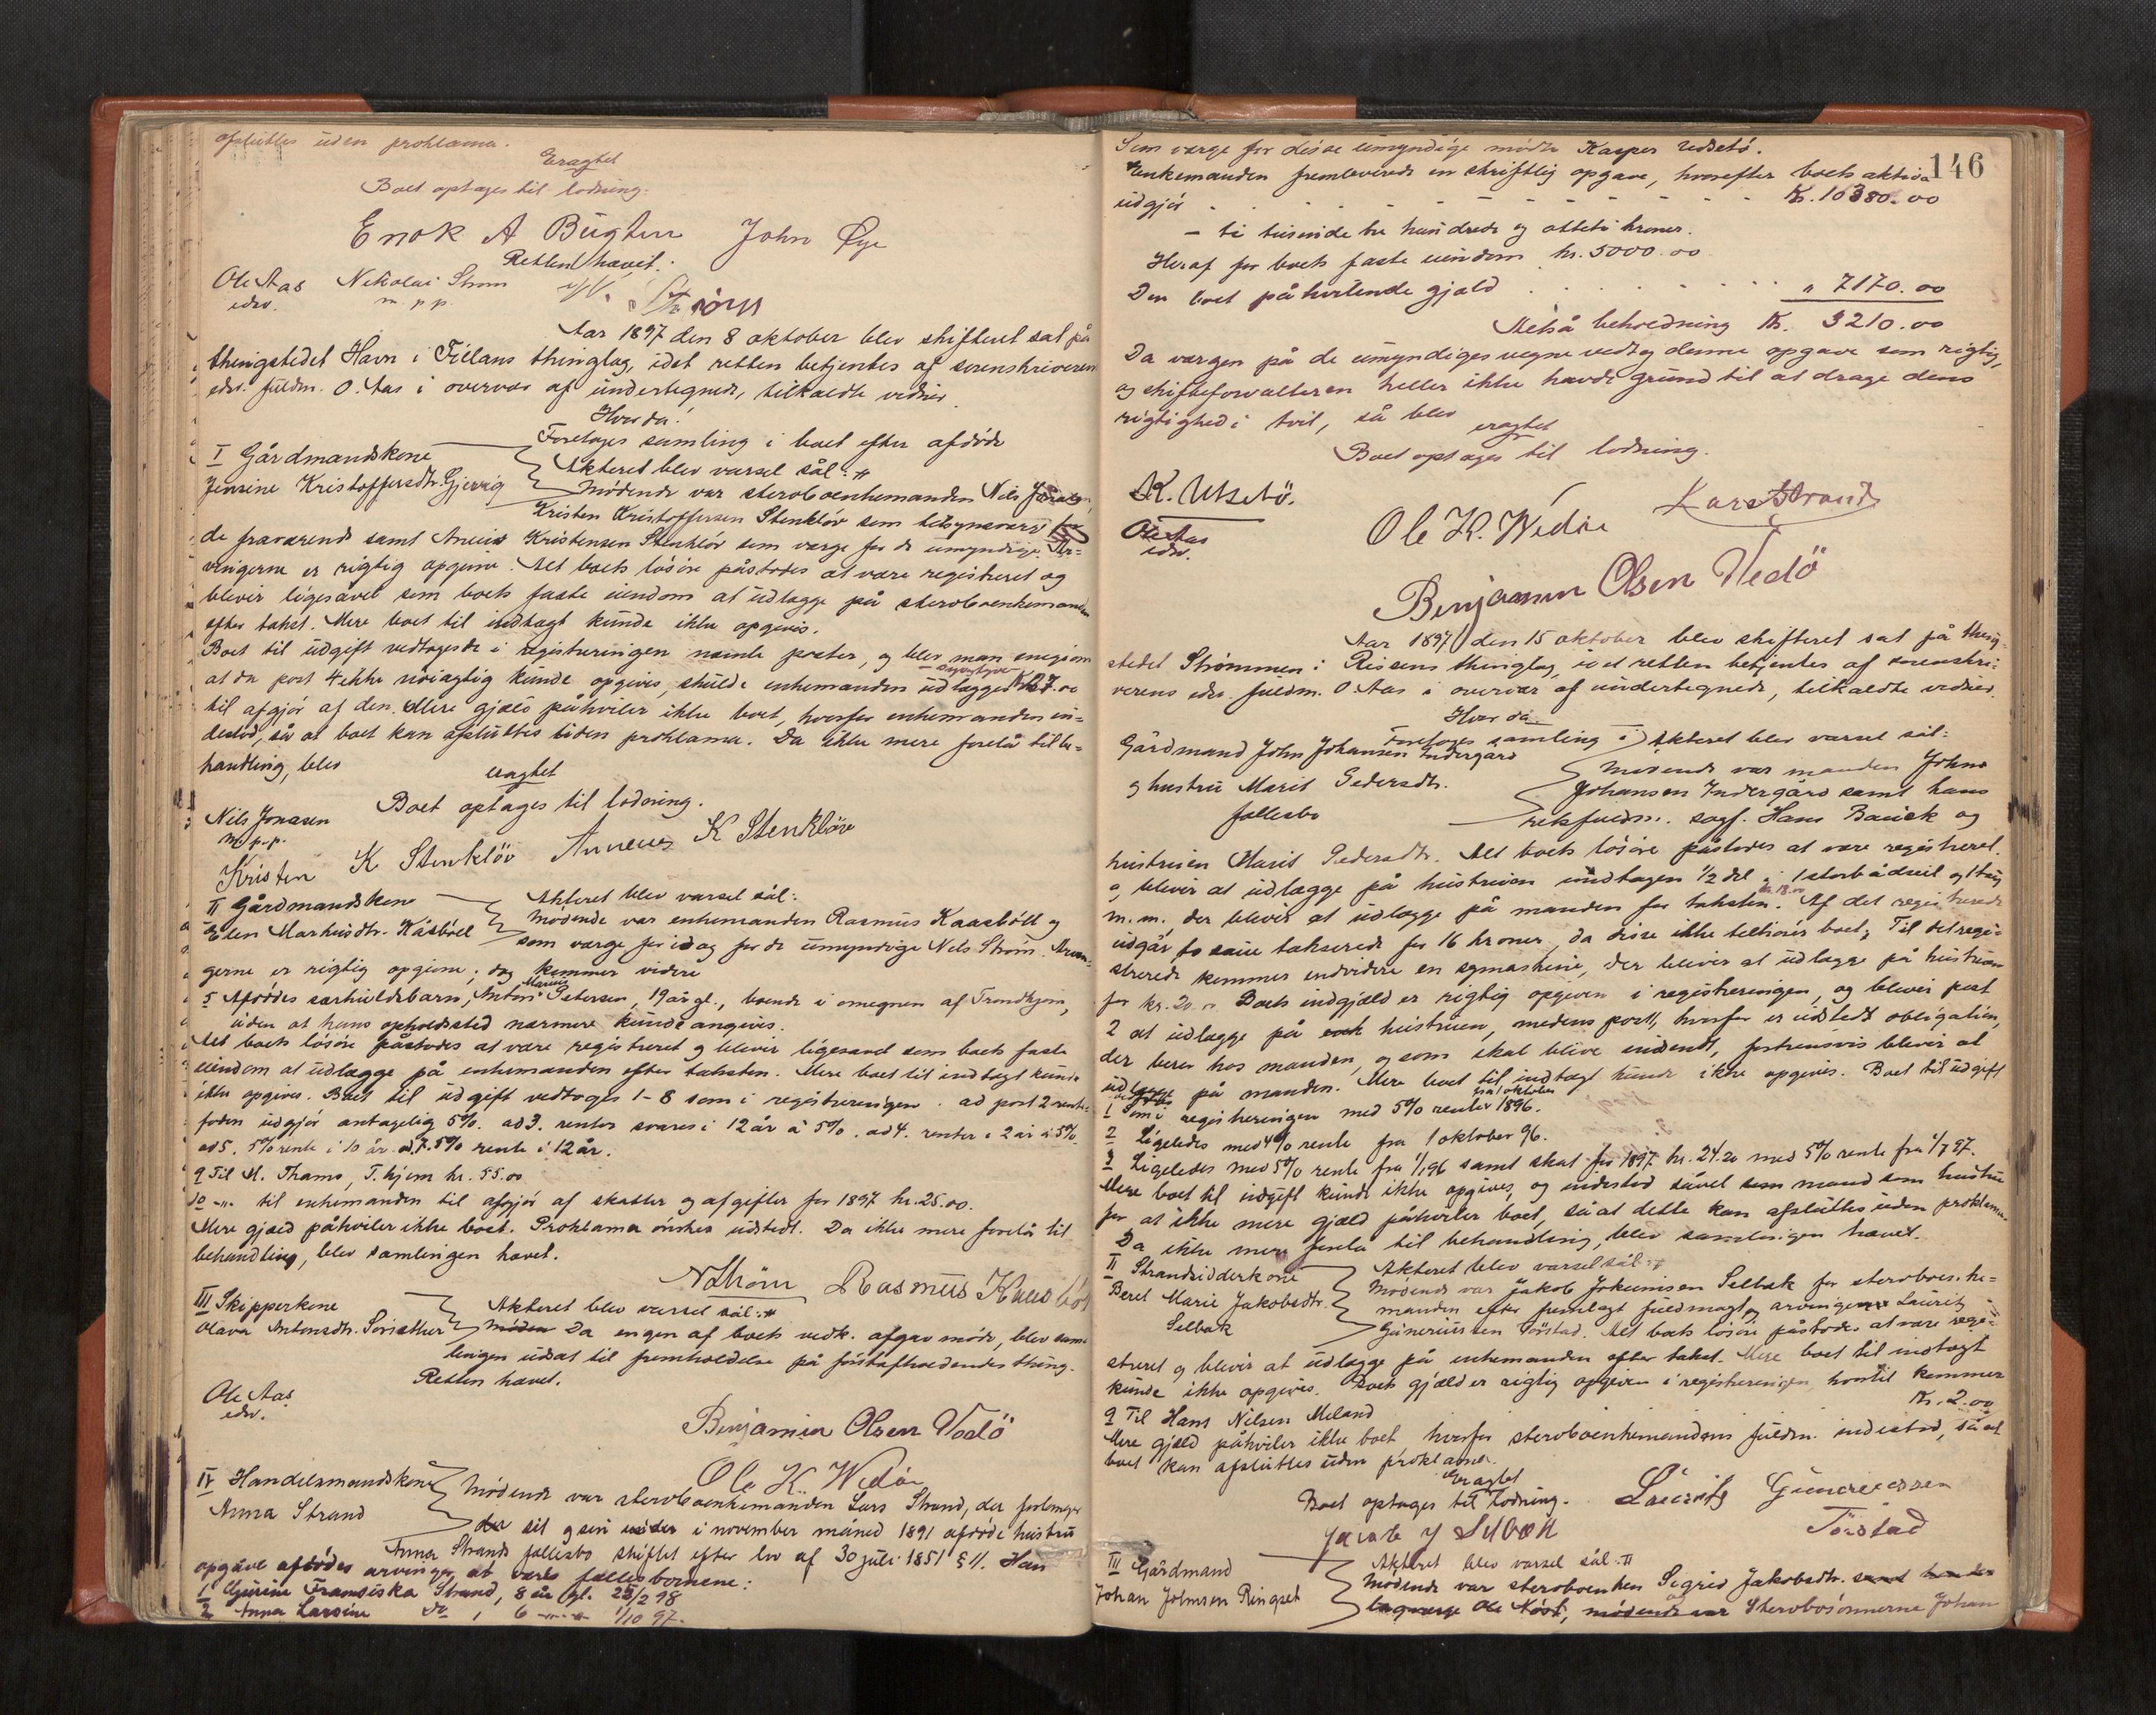 afsluttes uden proklama.
Eragtet
Boet optages til lodning.
Enok A Bugten John Øye
Retten hævet.
Ole Aas Nikolai Strøm
edsv. m. p. p. Strøm
Aar 1897 den 8 oktober blev skifteret sat på
thingstedet Havn i Fillans thinglag, idet retten betjentes af sorenskriveren
edsv. fuldm. O. Aas i overvær af undertegnede, tilkaldte vidner
Hvor da:
Foretoges samling i boet efter afdøde
I Gårdmandskone
Jensine Kristoffersdtr. Gjevig
Akteret blev varsel sål:
Mødende var sterboenkemanden Nils Jonasen,
Kristen Kristoffersen Stenkløv som tilsynsværge for
de fraværende samt Aneus Kristensen Stenkløv som værge for de umyndige. Ar=
vingerne er rigtig opgivne. Alt boets løsøre påstodes at være registreret og
bliver ligesåvel som boets faste eiendom at udlægge på sterboenkemanden
efter takst. Mere boet til indtægt kunde ikke opgives.
Boet til udgift vedtoges de i registreringen nævnte poster, og blev man enig om
at da post 4 ikke nøiagtig kunde opgives, skulde enkemanden udlægges kr. 7.00
til afgjør af den. Mere gjæld påhviler ikke boet, hvorfor enkemanden in=
destod, så at boet kan afsluttes uden proklama. Da ikke mere forelå til be=
handling, blev
eragtet
Boet optages til lodning.
Nils Jonasen
m. p. p.
Kristen K Stenkløv Anneus K Stenkløv
II Gårdmandskone
Elen Markusdtr. Kåsbøll
Akteret blev varsel sål:
Mødende var enkemanden Rasmus Kaasbøll og
som værge for idag for de umyndige Nils Strøm. Arvin=
gerne er rigtig opgivne; dog kommer videre
5 Afdødes særkuldsbarn, Anton Marius Petersen, 19 år gl., boende i omegnen af Trondhjem,
uden at hans opholdssted nærmere kunde angives.
Alt boets løsøre påstodes at være registreret og bliver ligesavel som boets faste
eiendom at udlægge på enkemanden efter taksten. Mere boet til indtægt kunde
ikke opgives. Boet til udgift vedtoges 1-8 som i registreringen. ad post 2 rente=
foden udgjør antagelig 5%. ad 3. renter svares i 12 år à 5%. ad 4. renter i 2 år à 5%.
ad 5. 5% rente i 10 år. ad 7. 5% rente i 12 år.
9 Til M. Thams, T.hjem kr. 55.00
10 -"- til enkemanden til afgjør af skatter og afgifter for 1897 kr. 25.00.
Mere gjæld påhviler ikke boet. Proklama ønskes udstedt. Da ikke mere forelå til
behandling, blev samlingen hævet.
N Strøm Rasmus Kaasbøl
III Skipperkone
Olava Antonsdtr. Sørsether
Akteret blev varsel sål:
Da engen af boets vedk. afgav møde, blev sam=
lingen udsat til fremholdelse på førstafholdendes thing.
Retten hævet.
Ole Aas
edsv.
Benjamin Olsen Vedö
Ole K. Wedøe
IV Handelsmandskone
Anna Strand
Mødende var sterboenkemanden Lars Strand, der forlanger
sit og sin i november måned 1891 afdøde hustru
Anna Strands fællesbo skiftet efter lov af 30 juli 1851 § 11. Han
opgave afdødes arvinger at være fællesbørnene:
1 Gurine Fransiska Strand, 8 år gl. 25/2 98
2 Anna Larsine do , 6 -"- 1/10 97.
146
Som værge for disse umyndige mødte Kasper Utsetø.
Enkemanden fremleverede en skriftlig opgave, hvorefter boets aktiva
udgjør Kr. 10380.00
- ti tusinde tre hundrede og otteti kroner.
Heraf for boets faste eiendom kr. 5000.00
Den boet påhvilende gjæld " 7170.00
Altså beholdning Kr. 3210.00
Da værgen på de umyndiges vegne vedtog denne opgave som rigtig,
og skifteforvalteren heller ikke havde grund til at drage dens
rigtighed i tvil, så blev
eragtet
Boet optages til lodning.
K. Utsetö.
Ole Aas
edsv.
Ole K. Wedøe Lars Strand
Benjamin Olsen Vedö
Aar 1897 den 15 oktober blev skifteret sat på thing=
stedet Strømmen i Rissens thinglag, idet retten betjentes af sorenskri=
verens edsv. fuldm. O. Aas i overvær af undertegnede, tilkaldte vidner.
Hvor da:
Foretoges samling i
Gårdmand John Johansen Indergård
og hustru Marit Pedersdtr.
fællesbo
Akteret blev varsel sål:
Mødende var manden John
Johansen Indergård samt hans
retsfuldm. sagf. Hans Bauck og
hustruen Marit Pedersdtr. Alt boets løsøre påstodes at være registreret
og bliver at udlægge på hustruen undtagen 1/2 del i 1 storbådseil og 1 tøy
m.m. der bliver at udlægge på manden for taksten. Af det registrerede
udgår to sauer takserede for 16 kroner, da disse ikke tilhører boet; Til det regi=
strerede kommer endvidere en symaskine, der bliver at udlægge på hustruen
for kr. 20.00. Boets indgjæld er rigtig opgiven i registreringen, og bliver post
2 at udlægge på hustruen, medens post 1, hvorfor er udstedt obligation,
der beror hos manden, og som skal blive indfriet, fortrinsvis bliver at
udlægge på manden. Mere boet til indtægt kunde ikke opgives. Boet til udgift
1 Som i registreringen med 5% renter fra 1 oktober 1896.
2 Ligeledes med 4% rente fra 1 oktober 96.
3 Ligeledes med 5% rente fra 1/1 96 samt skat for 1897 kr. 24.20 med 5% rente fra 1/7 97.
Mere boet til udgift kunde ikke opgives, og indestod såvel mand som hustru
for at ikke mere gjæld påhviler boet, så at dette kan afsluttes uden proklama.
Da ikke mere forelå til behandling, blev samlingen hævet.
II Strandsidderkone
Beret Marie Jakobsdtr.
Selbæk
Akteret blev varsel sål:
Mødende var Jakob Jokumsen Selbæk for sterboenke=
manden efter fremlagt fuldmagt og arvingen Laurits
Guneriussen Tørstad. Alt boets løsøre påstodes at være regi=
streret og bliver at udlægge på enkemanden efter takst. Mere boet til indtægt
kunde ikke opgives. Boets gjæld er rigtig opgiven i registreringen, hvortil kommer
9 Til Hans Nilsen Meland Kr. 2.00
Mere gjæld påhviler ikke boet hvorfor sterboenkemandens fuldm. indestod, så at
boet kan afsluttes uden proklama.
Eragtet
Boet optages til lodning. Laurits Guneriussen
Jacob J Selbæk Tørstad
III Gårdmand
Johan Johnsen Ringset
Akteret blev varsel sål:
Mødende var sterboenken Sigrid Jakobsdtr.
lagværge Ole Nøst, mødende var Sterbosønnerne Johan